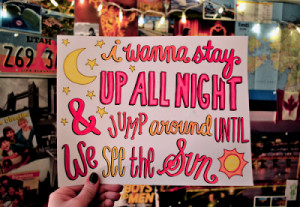 UTAH
269
i wanna stay
UP ALL NIGHT
& JUMP around UNTIL
We see the Sun
BOYS